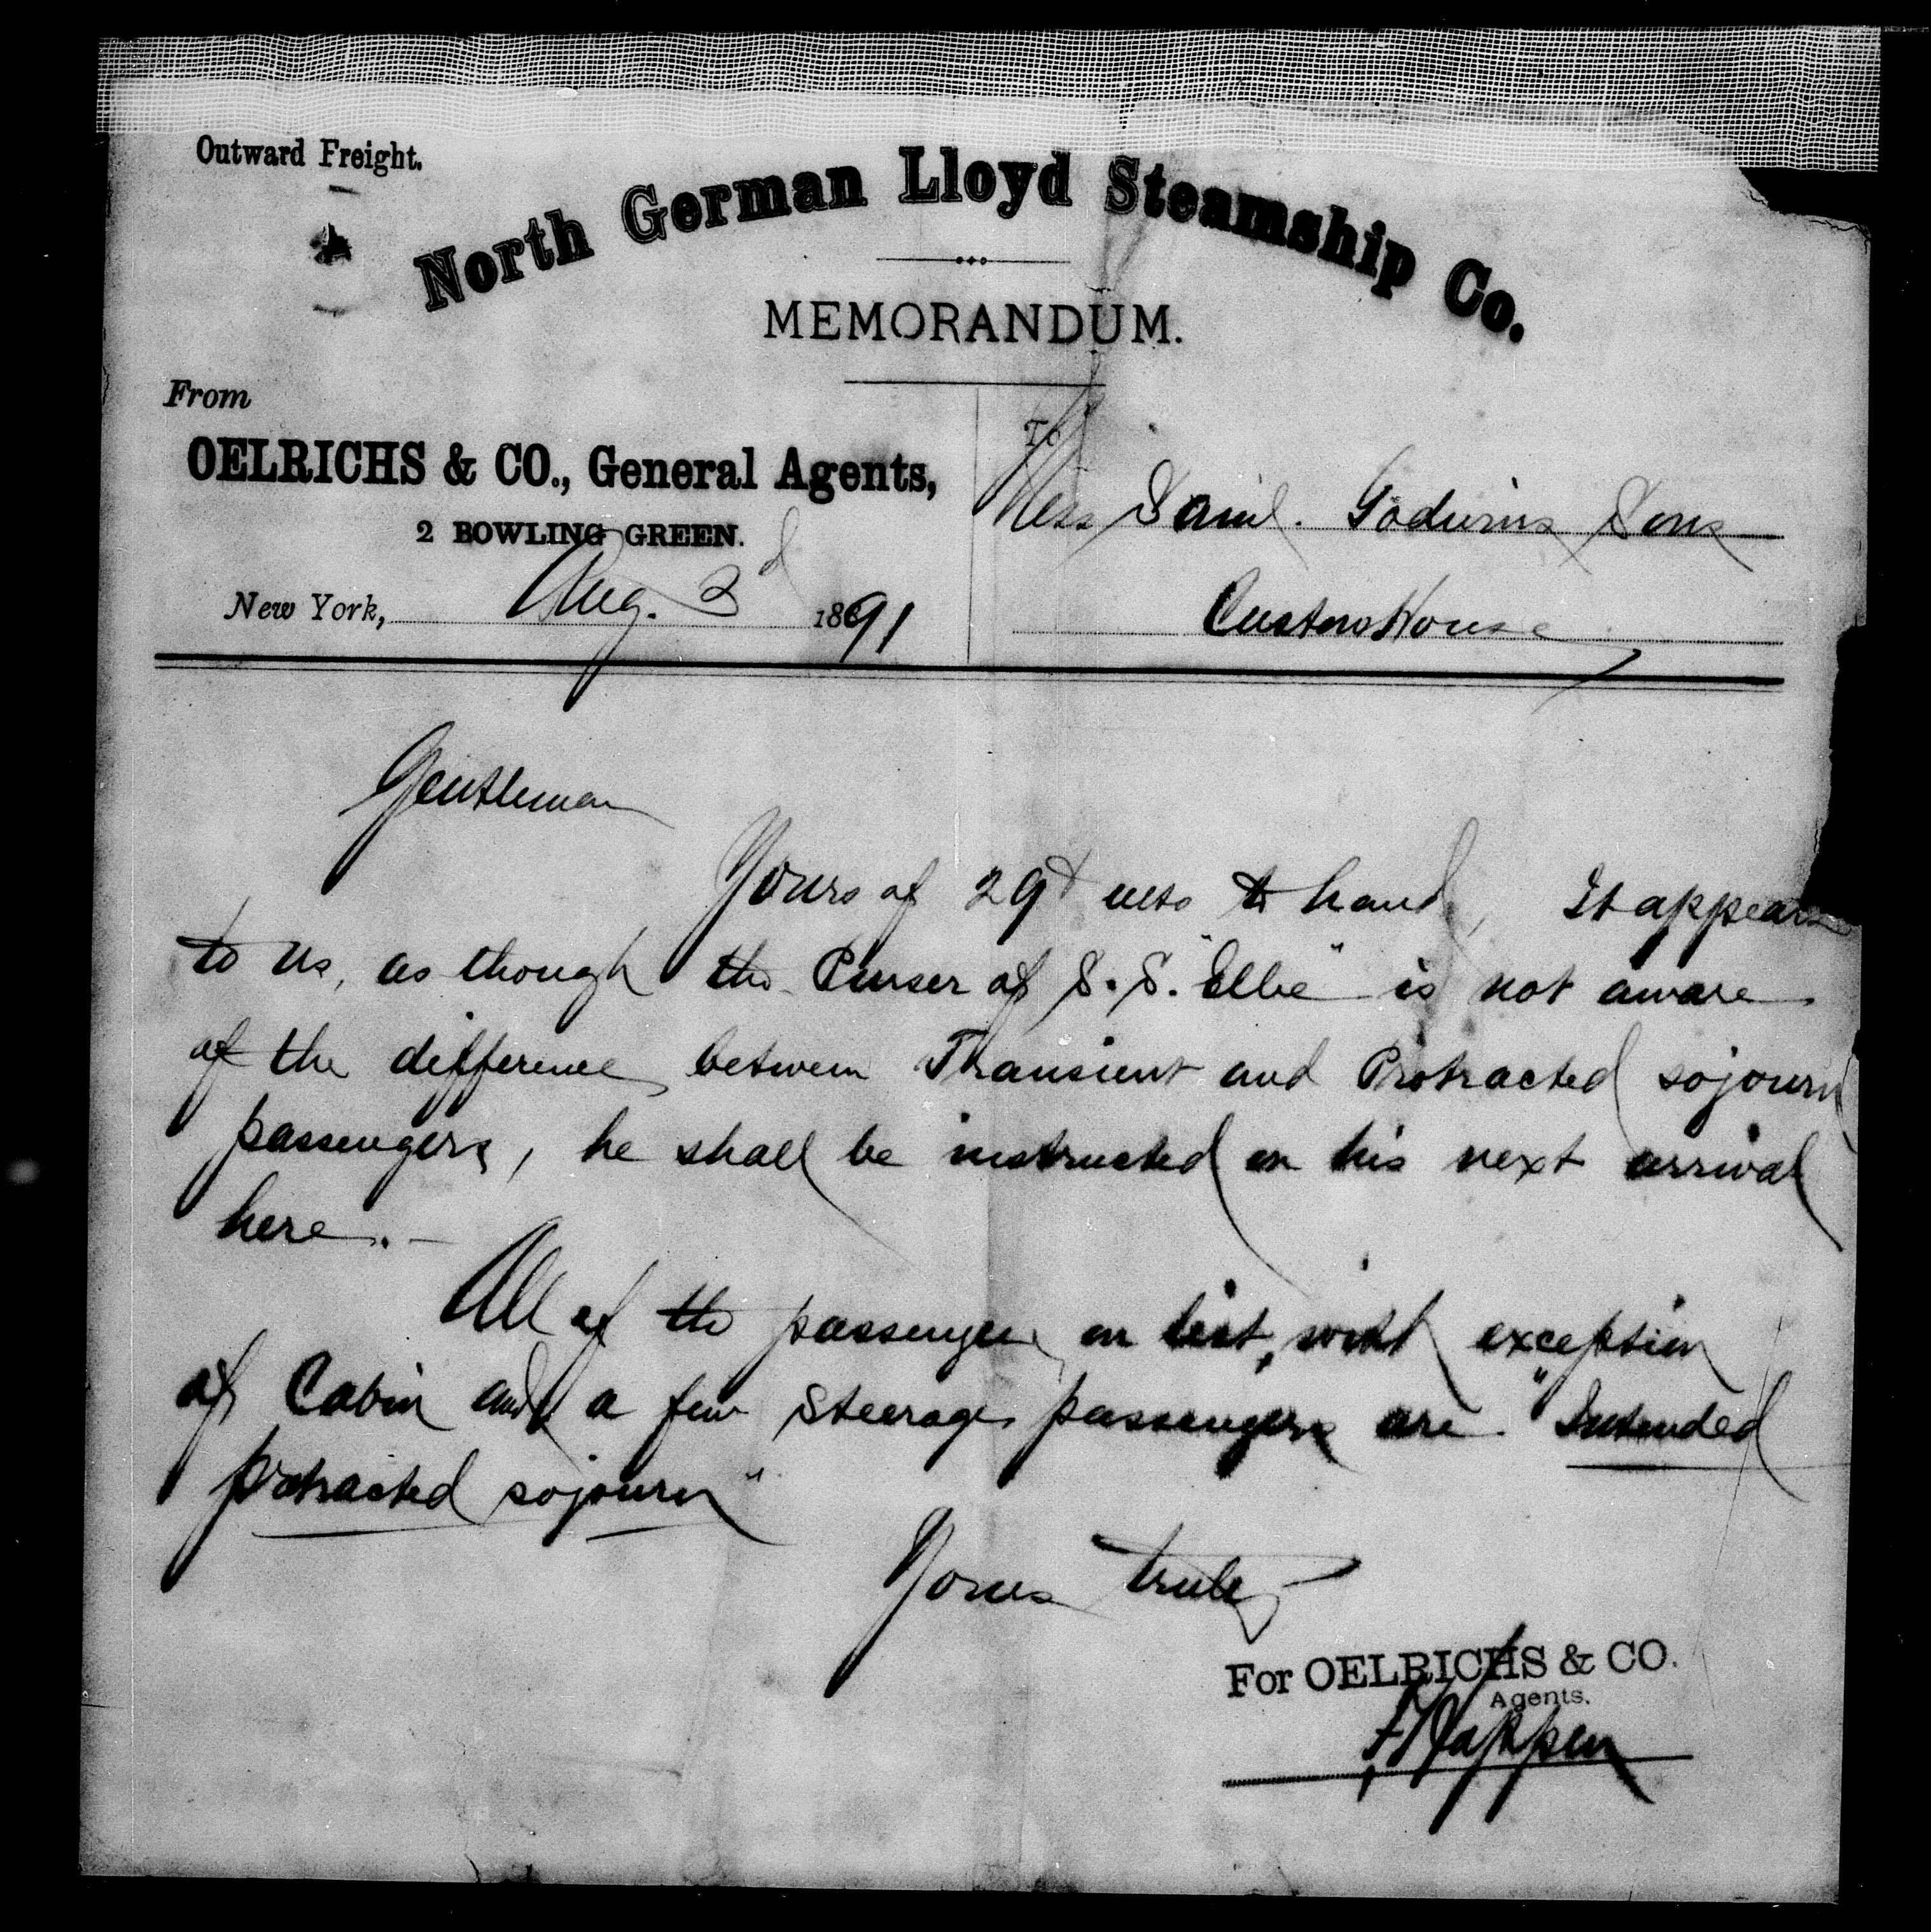 Outward Freight.
North German Lloyd Steamship Co.
MEMORANDUM.
From
OELRICHS & CO., General Agents,
2 BOWLING GREEN.
New York, Aug. 3d 1891
To
Mess Saml. Godwins Sons
Custom House
Gentlemen
Yours of 29t ulto to hand, It appears
to us, as though the Purser of S.S. "Elbe" is not aware
of the difference between Transient and Protracted sojourn
passengers, he shall be instructed on his next arrival
here. —
All of the passengers on list, with exception
of Cabin and a few Steerage passengers are "Intended
protracted sojourn"
Yours truly
For OELRICHS & CO.
Agents.